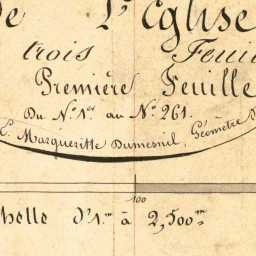 de L'Eglise
trois Feuil
Première Feuille
Du N.º 1.er au N.º 261.
C. Marqueritte Dumesnil, Géomètre
100
helle d'1.m à 2,500.m